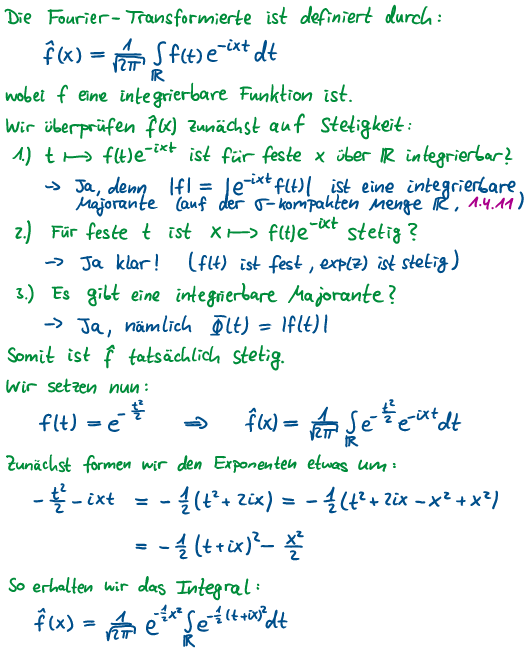 Die Fourier-Transformierte ist definiert durch:
f̂(x) = 1/√(2π) ∫_ℝ f(t) e^(-ixt) dt
wobei f eine integrierbare Funktion ist.
Wir überprüfen f̂(x) zunächst auf Stetigkeit:
1.) t ↦ f(t)e^(-ixt) ist für feste x über ℝ integrierbar?
→ Ja, denn |f| = |e^(-ixt) f(t)| ist eine integrierbare
Majorante (auf der σ-kompakten Menge ℝ, 1.4.11)
2.) Für feste t ist x ↦ f(t)e^(-ixt) stetig?
→ Ja klar! (f(t) ist fest, exp(z) ist stetig)
3.) Es gibt eine integrierbare Majorante?
→ Ja, nämlich Φ(t) = |f(t)|
Somit ist f̂ tatsächlich stetig.
Wir setzen nun:
f(t) = e^(-t²/2) ⇒ f̂(x) = 1/√(2π) ∫_ℝ e^(-t²/2) e^(-ixt) dt
Zunächst formen wir den Exponenten etwas um:
-t²/2 - ixt = -1/2 (t² + 2ix) = -1/2 (t² + 2ix - x² + x²)
= -1/2 (t + ix)² - x²/2
So erhalten wir das Integral:
f̂(x) = 1/√(2π) e^(-1/2 x²) ∫_ℝ e^(-1/2 (t+ix)²) dt